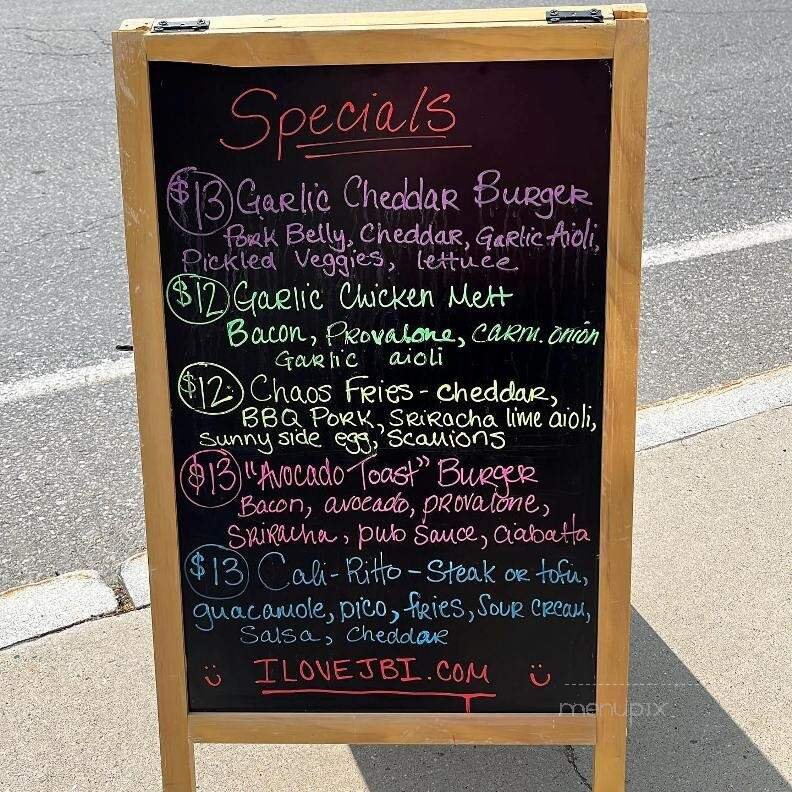 Specials
$13 Garlic Cheddar Burger
Pork Belly, Cheddar, Garlic Aioli,
Pickled Veggies, lettuce
$12 Garlic Chicken Melt
Bacon, Provalone, carm. onion
Garlic aioli
$12 Chaos Fries - cheddar,
BBQ Pork, Sriracha lime aioli,
sunny side egg, scallions
$13 "Avocado Toast" Burger
Bacon, avocado, provalone,
Sriracha, pub sauce, ciabatta
$13 Cali-Ritto - Steak or tofu,
guacamole, pico, fries, sour cream,
Salsa, cheddar
ILOVEJBI.COM
menupix